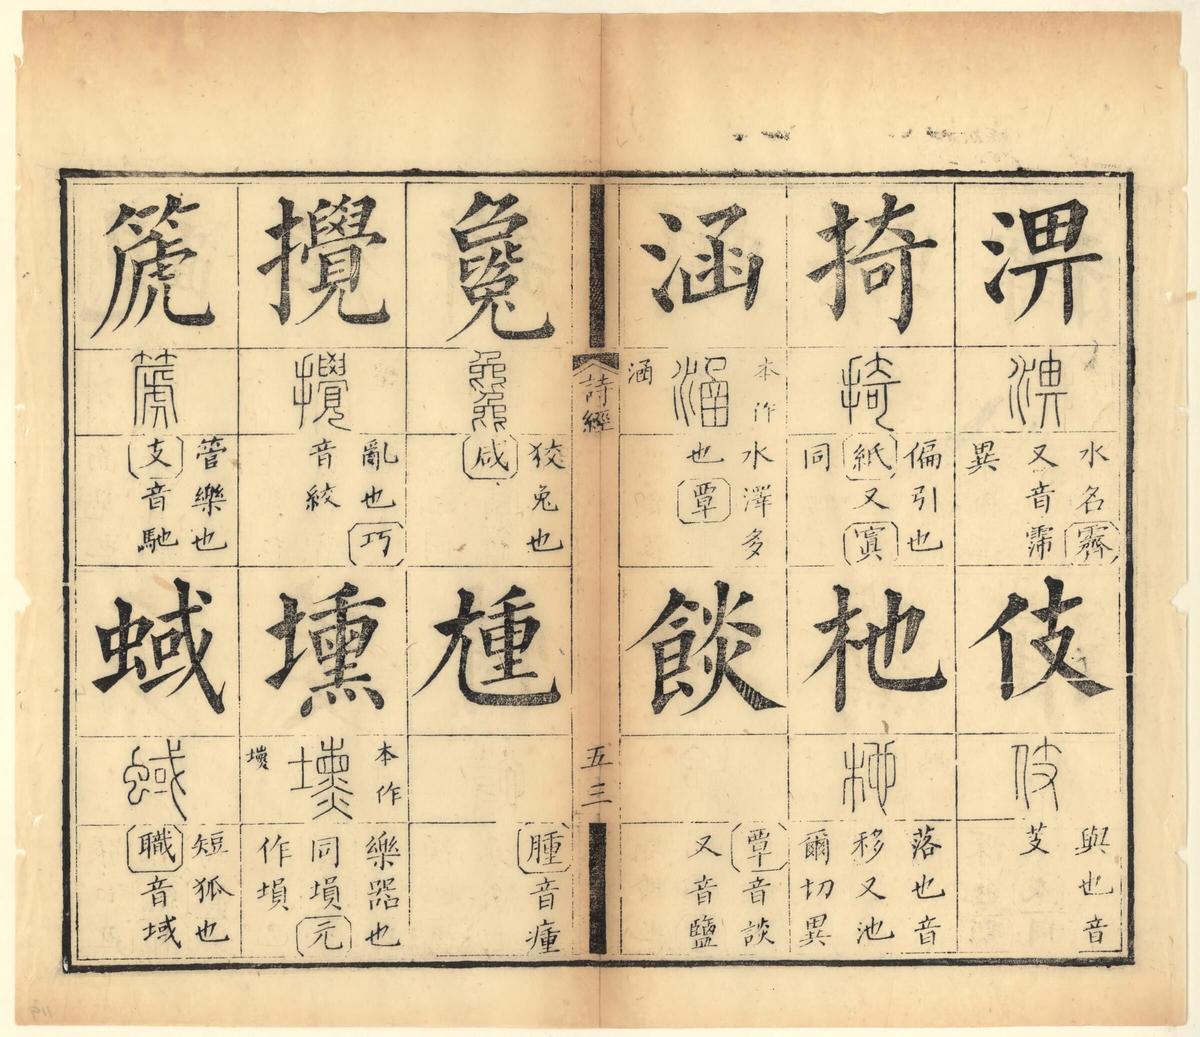 淠
淠
水名霽
又音霈
異
伎
伎
與也音
芰
掎
掎
偏引也
紙又寘
同
杝
杝
落也音
移又池
爾切異
涵
本作
涵
涵
水澤多
也覃
餤
覃音談
又音鹽
詩經
五三
毚
毚
狡兔也
咸
尰
腫音瘇
攪
攪
亂也巧
音絞
壎
本作
壎
樂器也
同塤元
作塤
篪
篪
管樂也
支音馳
蜮
蜮
短狐也
職音域